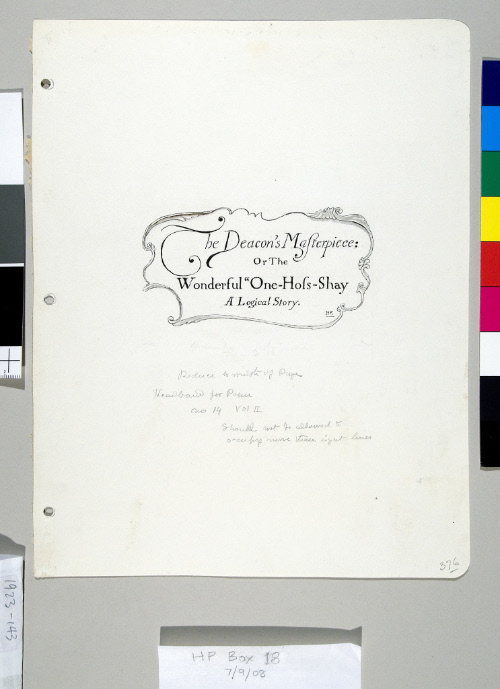 The Deacon's Masterpiece:
Or The
Wonderful "One-Hoss-Shay
A Logical Story.
HP
Reduce to width of Page
Headband for Poem
no 19 Vol II
Should not be allowed to
occupy more than eight lines
376
1923-143
HP Box 18
7/9/08